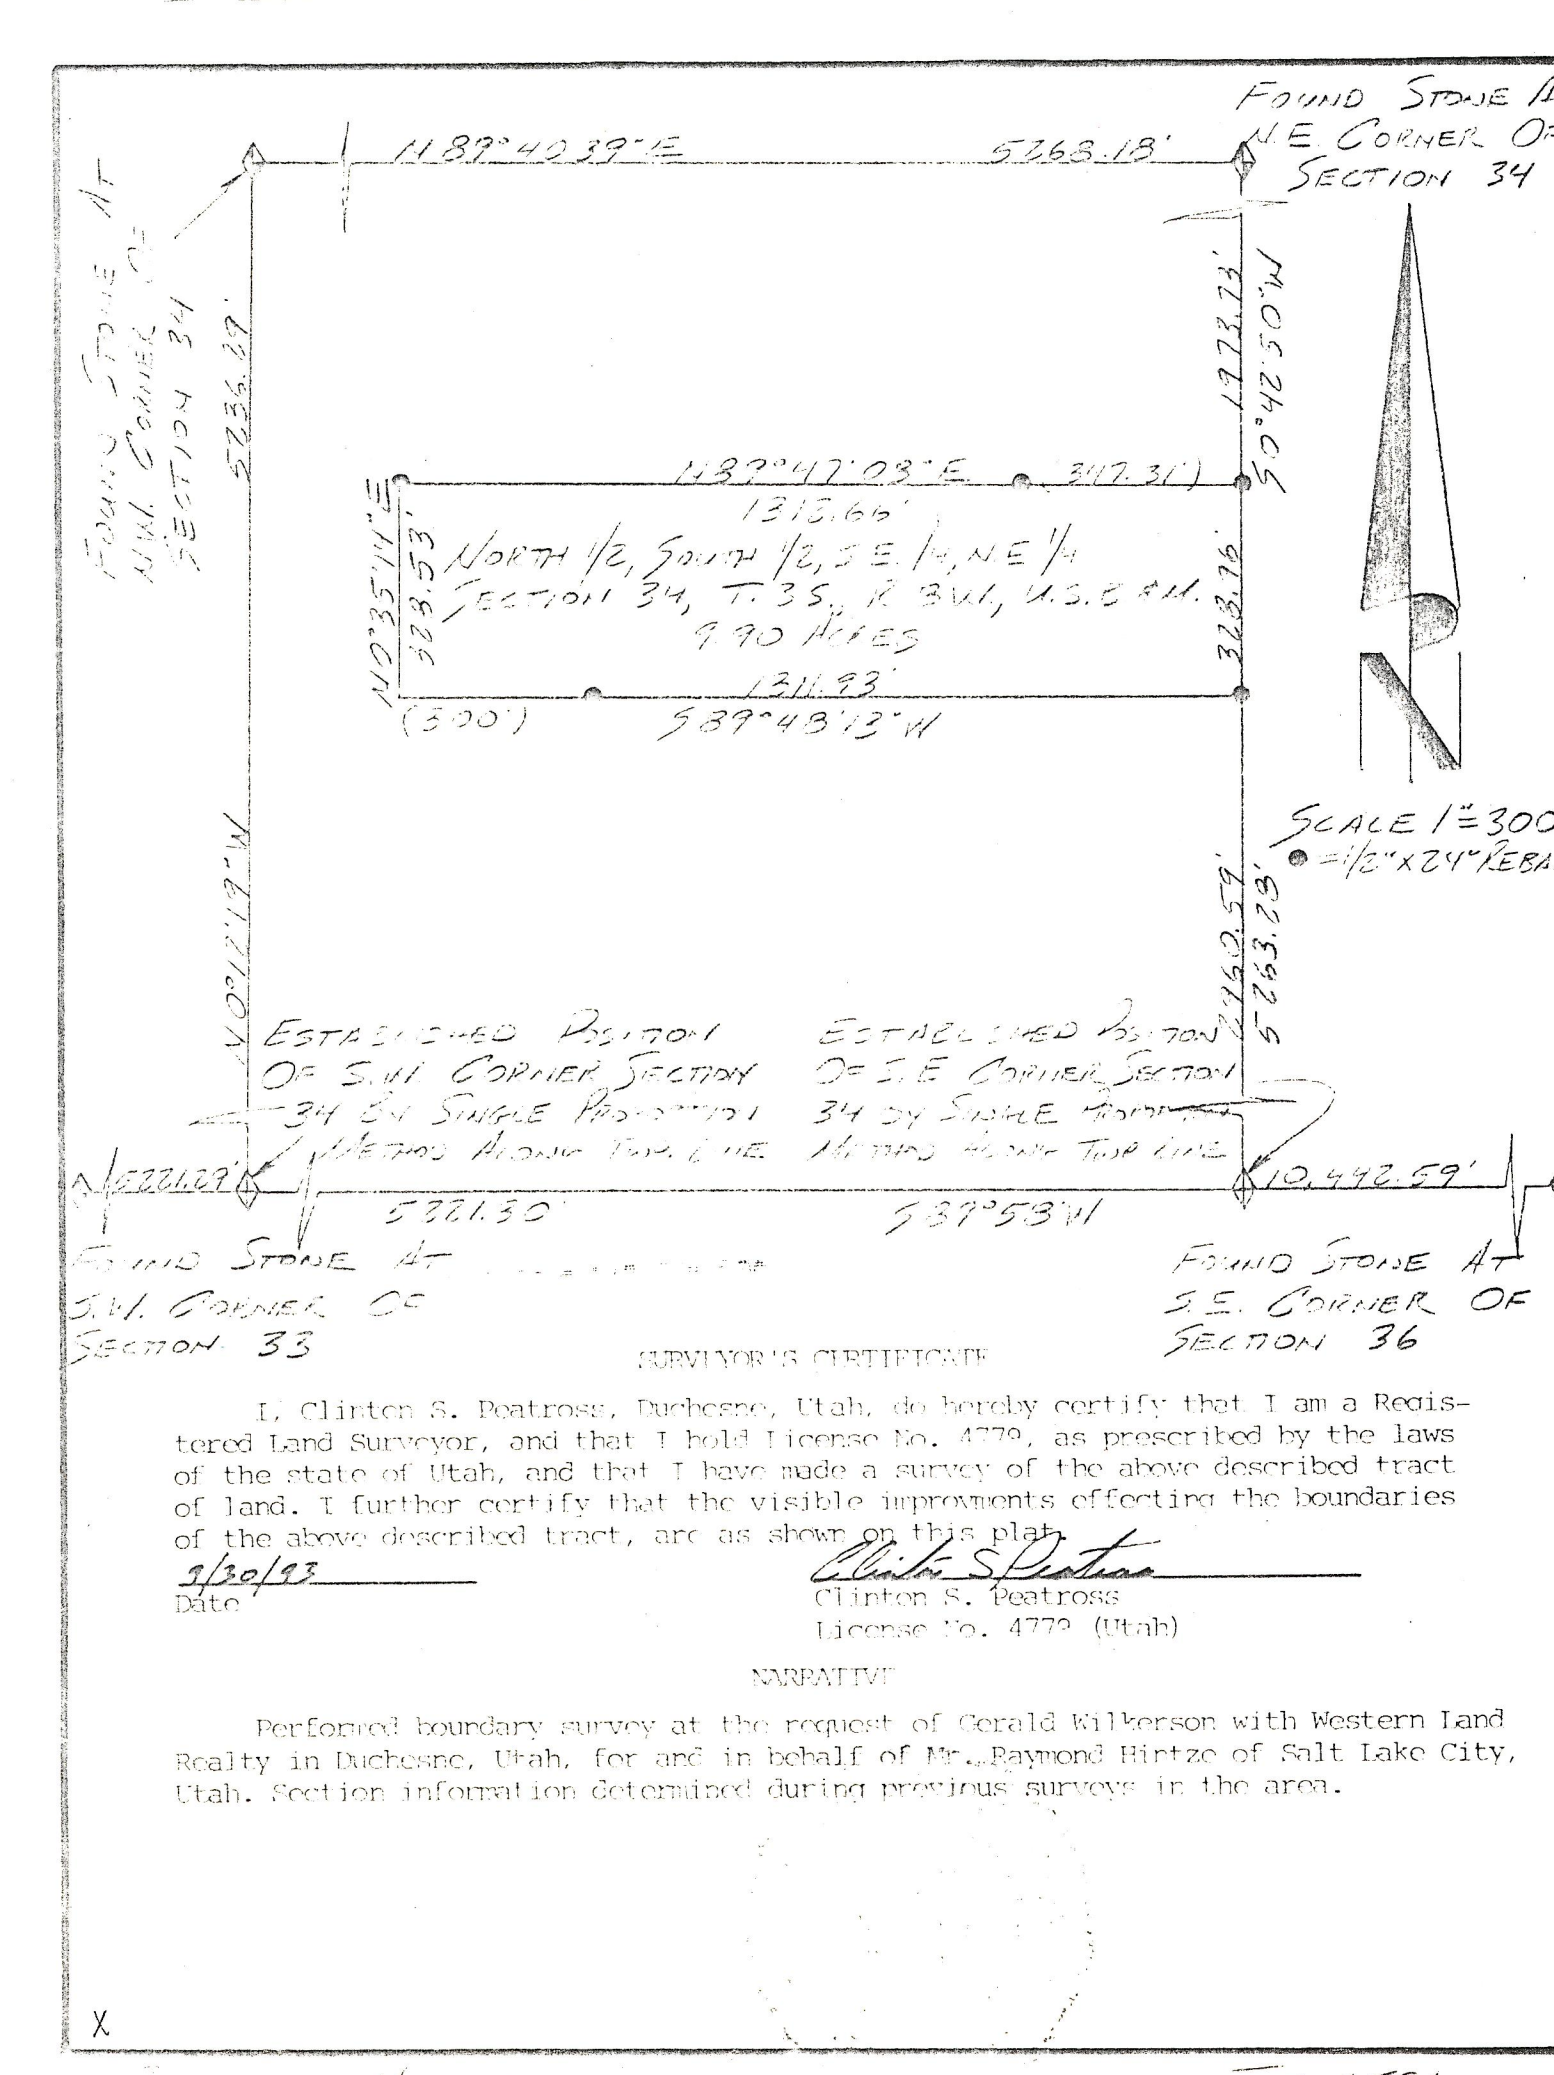 FOUND STONE A
N.E. CORNER OF
SECTION 34
N 89°40'39"E 5268.18'
FOUND STONE AT
N.W. CORNER OF
SECTION 34
5236.29'
N0°17'19"W
1973.73'
S0°42'50"W
N89°47'03"E (347.31')
1313.66'
N0°35'14"E
328.53'
NORTH 1/2, SOUTH 1/2, S.E. 1/4, N.E 1/4
SECTION 34, T. 3S., R. 3W., U.S.B.&M.
9.90 ACRES
328.96'
1311.93'
(300') S89°48'13"W
SCALE 1"=300
=1/2" X 24" REBA
2960.59'
5263.28'
ESTABLISHED POSITION
OF S.W. CORNER SECTION
34 BY SINGLE PROPORTION
METHOD ALONG TWP. LINE
ESTABLISHED POSITION
OF S.E CORNER SECTION
34 BY SINGLE PROPORTION
METHOD ALONG TWP LINE
5221.29' 10,442.59'
5221.30' S89°58'W
FOUND STONE AT
S.W. CORNER OF
SECTION 33
FOUND STONE AT
S.E. CORNER OF
SECTION 36
N
SURVEYOR'S CERTIFICATE
I, Clinton S. Peatross, Duchesne, Utah, do hereby certify that I am a Regis-
tered Land Surveyor, and that I hold License No. 4779, as prescribed by the laws
of the state of Utah, and that I have made a survey of the above described tract
of land. I further certify that the visible improvments effecting the boundaries
of the above described tract, are as shown on this plat.
9/30/93 Clinton S Peatross
Date Clinton S. Peatross
License No. 4779 (Utah)
NARRATIVE
Performed boundary survey at the request of Gerald Wilkerson with Western Land
Realty in Duchesne, Utah, for and in behalf of Mr. Raymond Hintze of Salt Lake City,
Utah. Section information determined during previous surveys in the area.
X